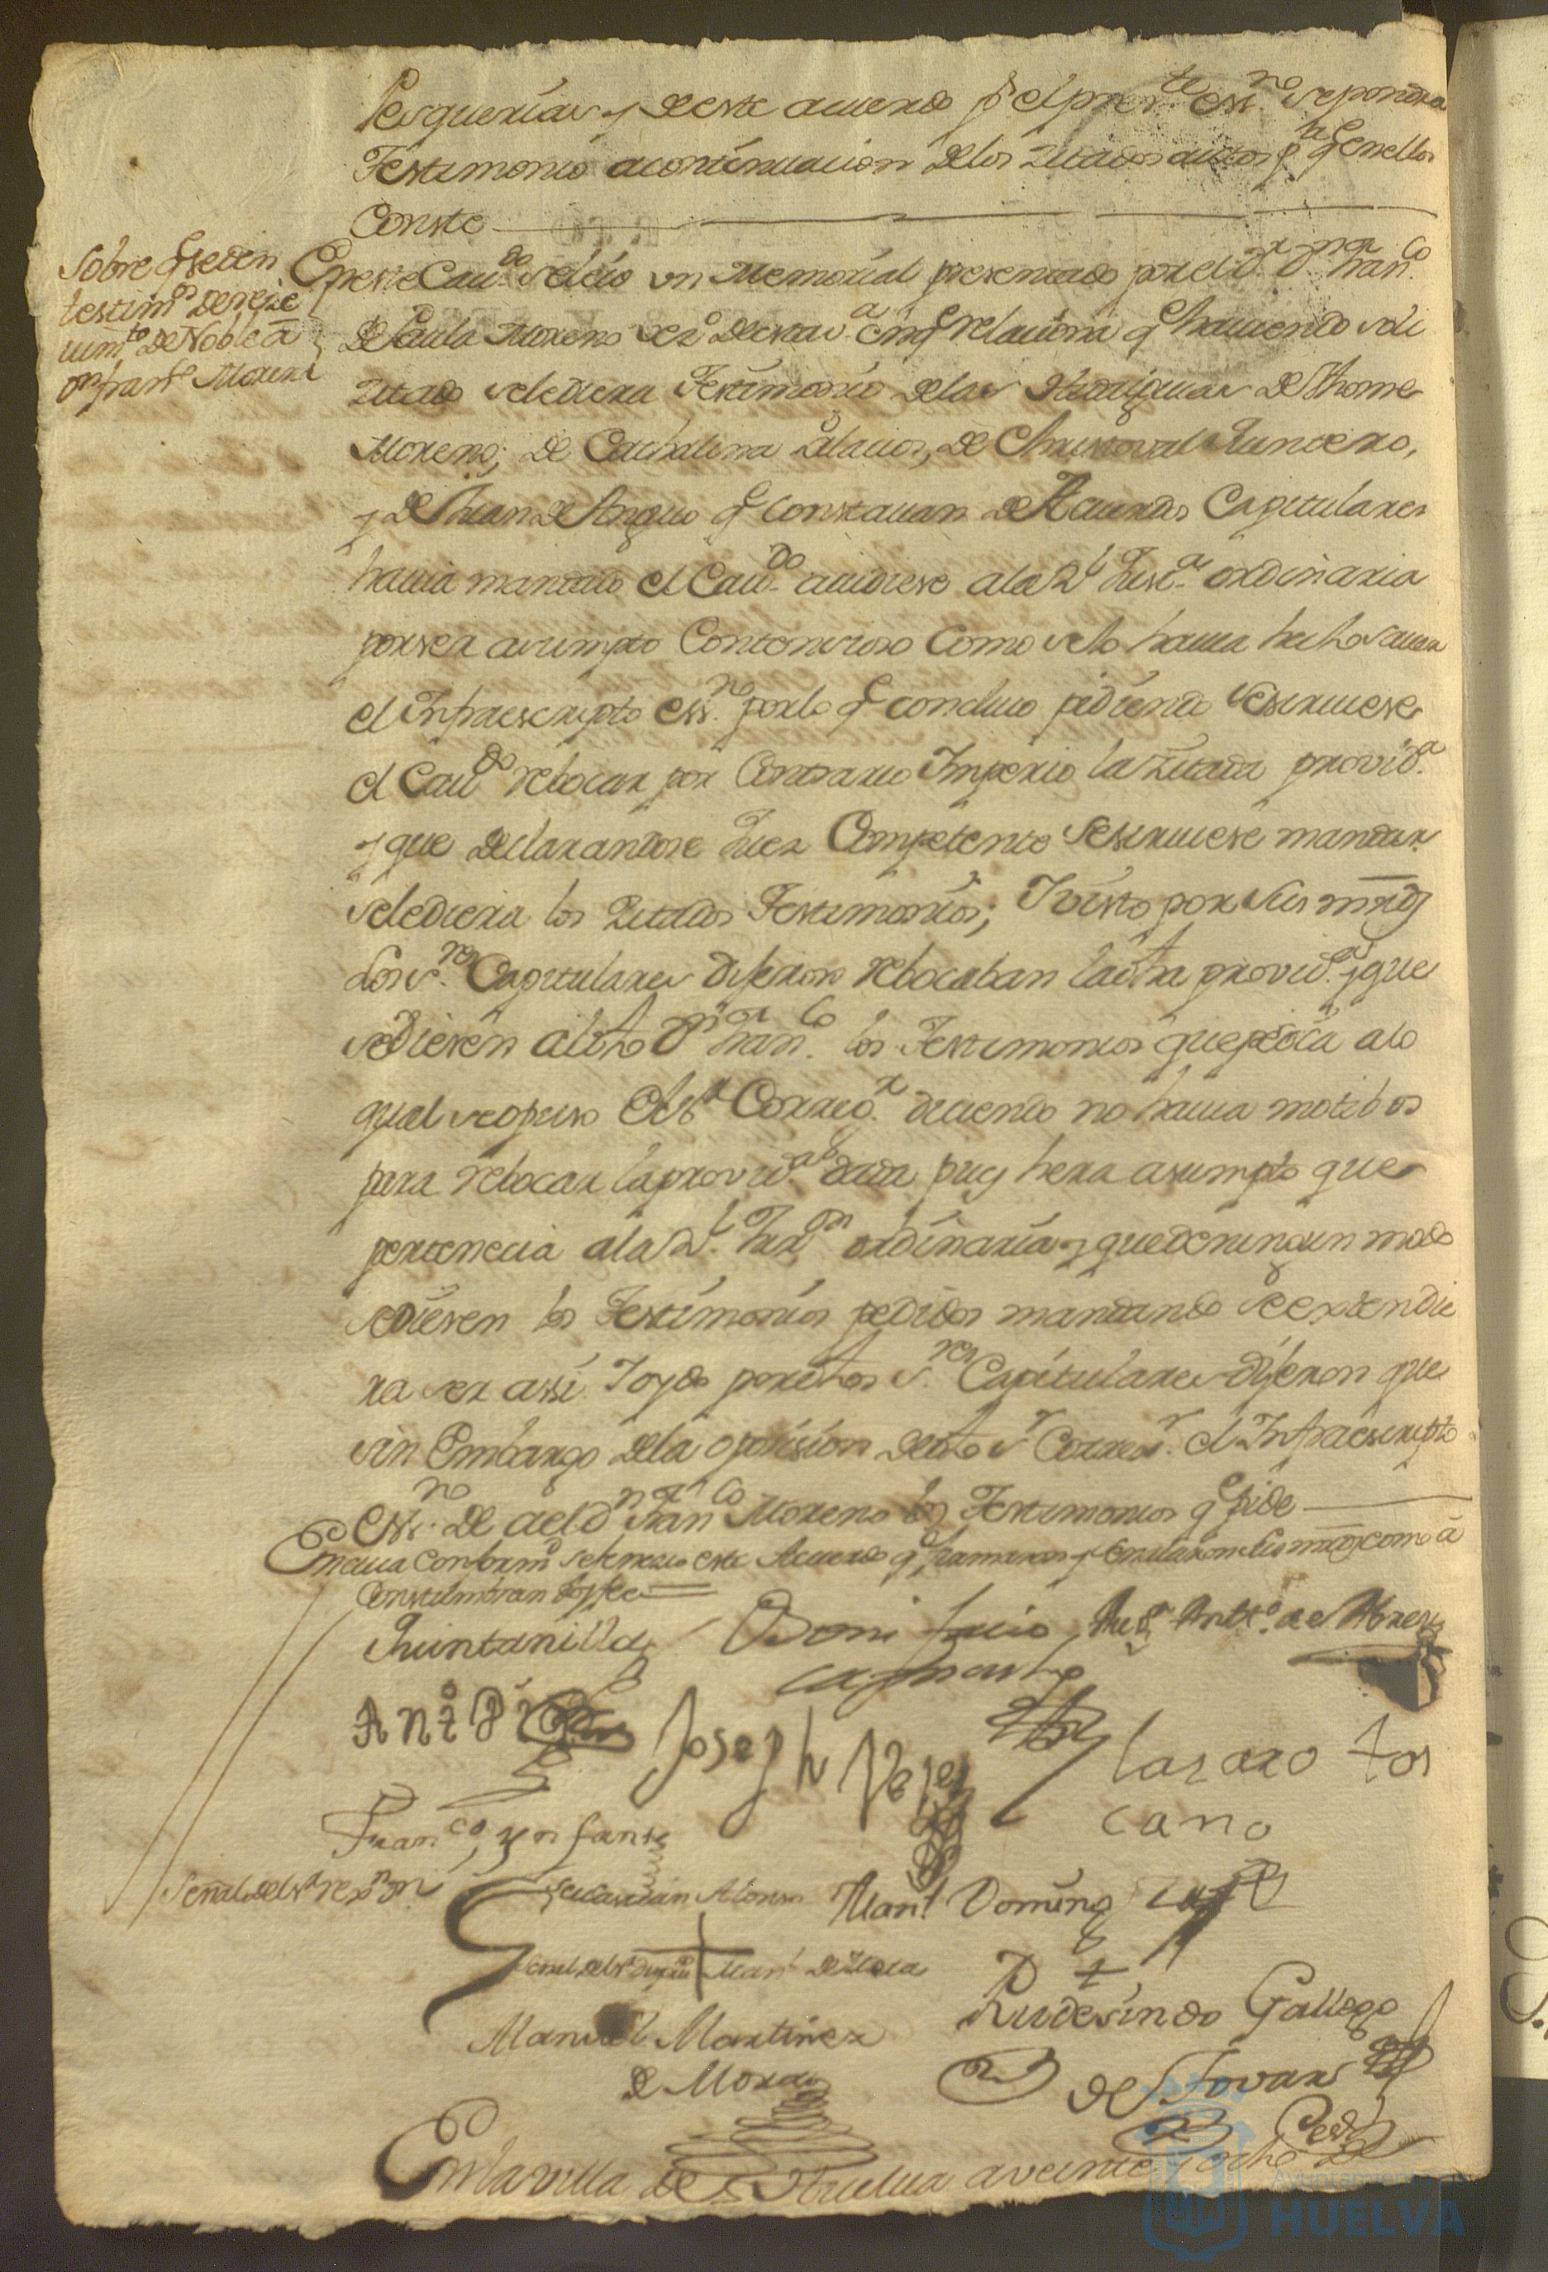 Pesquerias y de este acuerdo p.r el pres.te ess.no se pondra
Testimonio acontinuacion delos Zitados autos p.a q.e en ellos
Conste
Sobre q.e se den
testim.os de reze
uim.to de Noblea
Eneste Cau.do se leio un Memorial presentado por el S.r D.n Fran.co
de Paula Moreno vez.o de esta v.a en q.e relaciona q.e haviendo soli
zitado se le diera Testimonio de las de Thome
Moreno, de Cathalina Palacios, de Christoval Quintero,
y de Juan de q.e constauan de Acuerdos Capitulares
hauia mandado el Cau.do acudiese ala R.l Just.a ordinaria
por ser asumpto Contencioso como selo hauia hecho sauer
el Infraescripto ess.no por lo q.e concluio pidiendo se siruiese
el Cau.do rebocar por Contrario Imperio la Zitada provid.a
y que declarandose Juez Competente se siruiese mandar
sele diera los Zitados Testimonios; Y visto por sus mrds
Los S.res Capitulares dijeron rebocaban la dha provid.a y que
se diesen a dho D.n Fran.co los Testimonios que pedia alo
qual se opuso el S.r Correo.r deciendo no hauia motibos
para rebocar la provid.a dada pues hera asumpto que
pertenecia ala R.l Jur.on ordinaria y que de ningun modo
se diesen los Testimonios pedidos mandando se extendie
ra ser assi. Y oydo por dhos S.res Capitulares dijeron que
sin embargo dela oposision de dho S.r Correx.r el Infraescripto
ess.no de a el D.n Fran.co Moreno los Testimonios q.e pide
En cuia conform.d se fenezio este Acuerdo q.e firmaron y señalaron sus mrds como a
Constumbran doy fee
Quintanilla Bonifacio Ant.o de
Ant.o
Joseph Lazaro tos
cano
Fran.co ynfante
Señal del S.r
Sebastian Alonso Man.l Doming
Señal del S.r Man.l de Mora
Manuel Martinez
de Mora
Rudesindo Gallego
de Tovar
En la villa de Huelua a veinte y ocho de
Ayuntamiento de
HUELVA